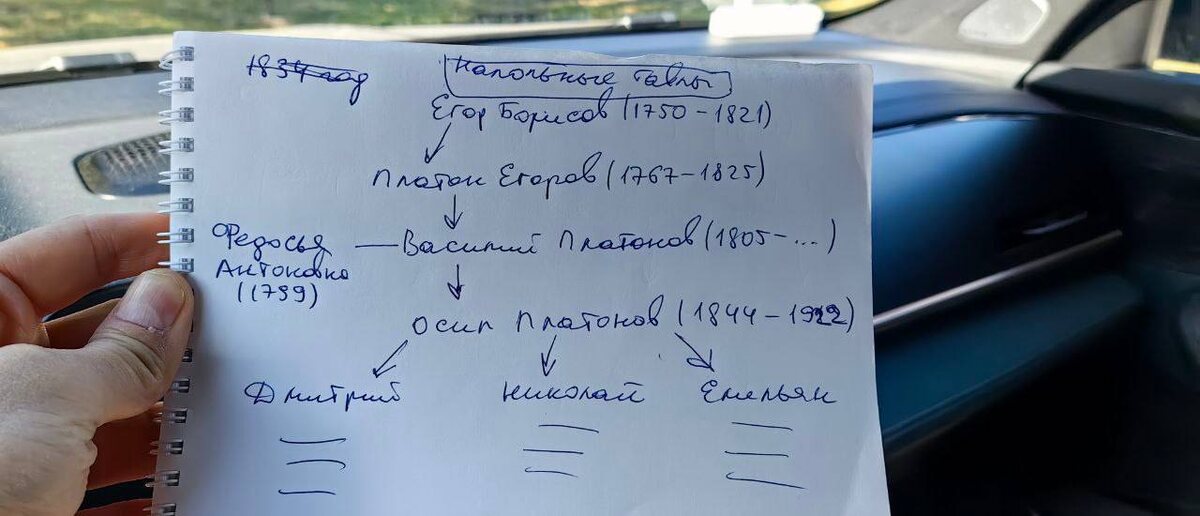 1834 год
Напольные Тавлы
Егор Борисов (1750-1821)
Платон Егоров (1767-1825)
Федосья — Василий Платонов (1805-...)
Антоновна
(1799)
Осип Платонов (1844-1922)
Дмитрий Николай Емельян